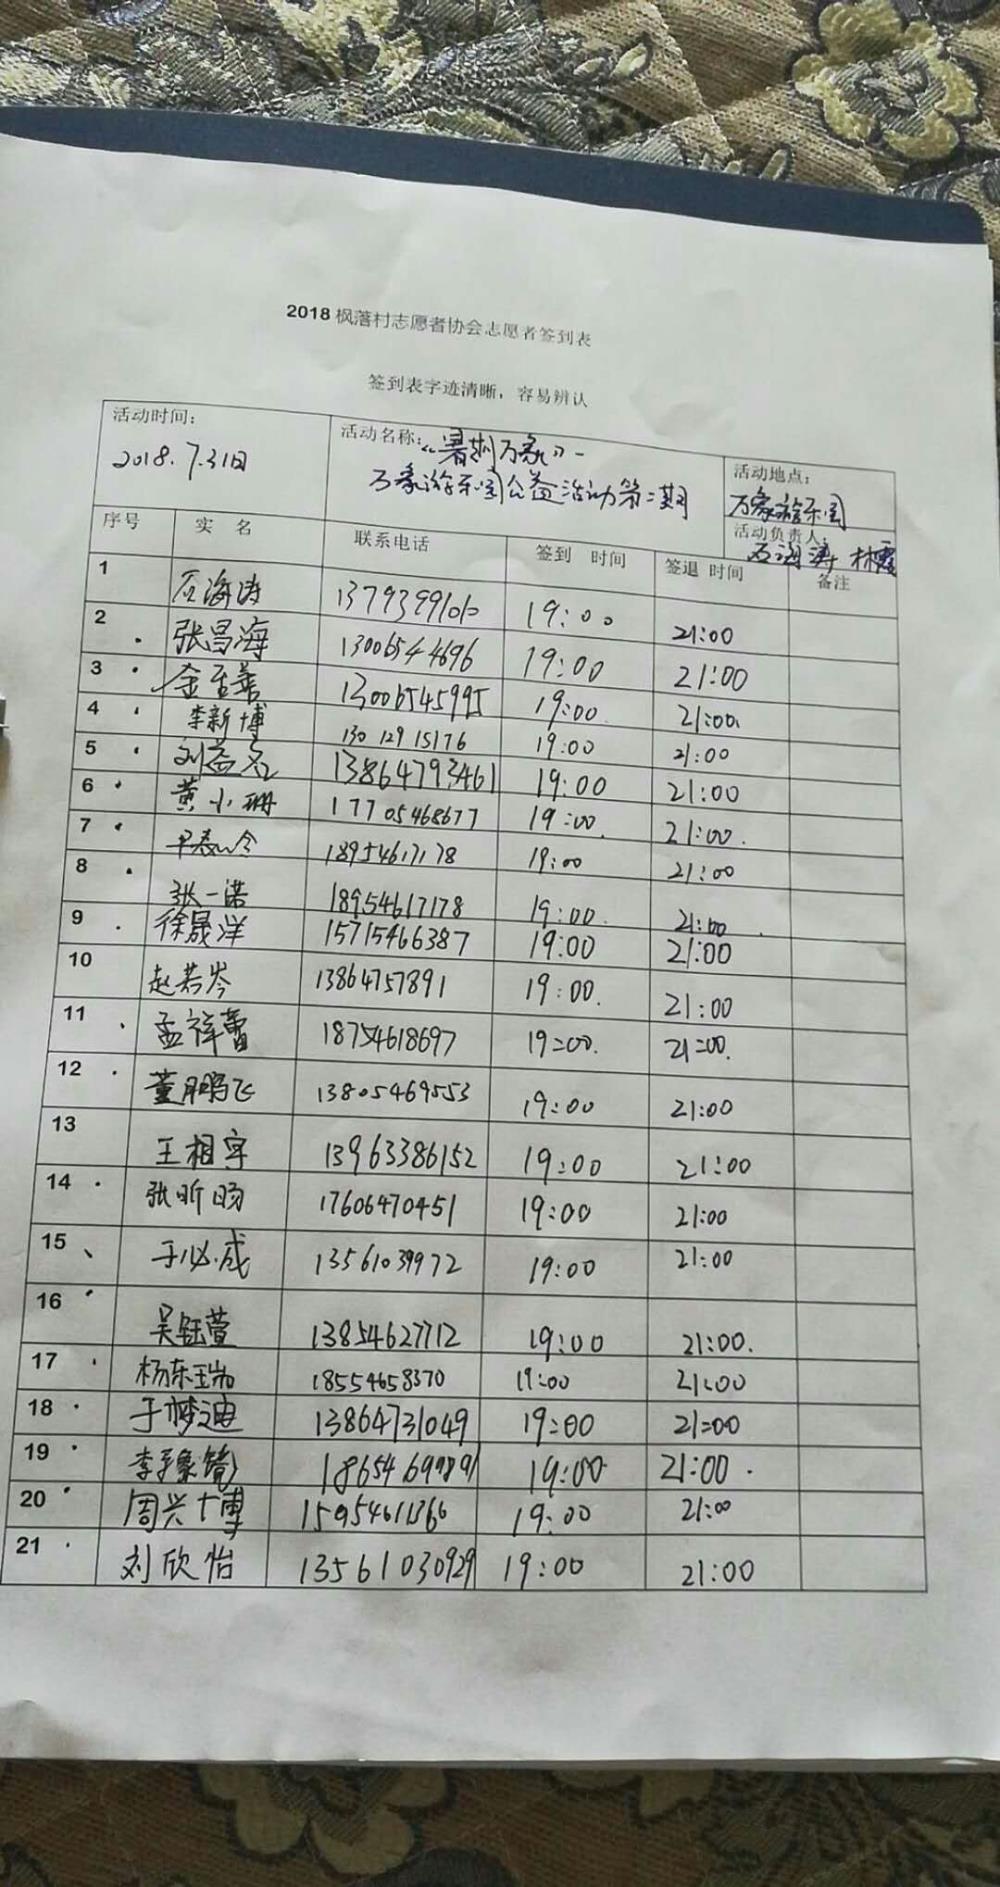 2018 枫落村志愿者协会志愿者签到表
签到表字迹清晰，容易辨认
活动时间：
2018.7.31日
活动名称：《暑期万象》一
万象游乐园公益活动第二期
活动地点：
万象游乐园
活动负责人
石海涛 林霞
序号 实 名 联系电话 签到 时间 签退 时间 备注
1 石海涛 19:00 21:00
2 张昌海 13006544696 19:00 21:00
3 13006545995 19:00 21:00
4 李新博 130 129 15176 19:00 21:00
5 刘益名 13864793461 19:00 21:00
6 黄小珊 17705468677 19:00 21:00
7 18954617178 19:00 21:00
8 张一诺 18954617178 19:00 21:00
9 徐晟洋 15715466387 19:00 21:00
10 赵若岑 13864757891 19:00 21:00
11 孟祥蕾 18754618697 19:00 21:00
12 董鹏飞 13805469553 19:00 21:00
13 王相宇 13963386152 19:00 21:00
14 张昕旸 17606470451 19:00 21:00
15 于必成 13561039972 19:00 21:00
16 吴钰萱 13854627712 19:00 21:00
17 杨东瑞 18554658370 19:00 21:00
18 于梦迪 13864731049 19:00 21:00
19 19:00 21:00
20 周兴博 15954611366 19:00 21:00
21 刘欣怡 13561030929 19:00 21:00